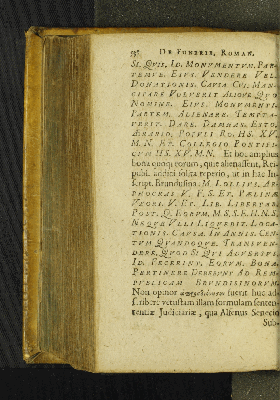 DE FUNERIB. ROMAN.
SI. QVIS. ID. MONVMENTVM. PAR-
TEMVE. EIVS. VENDERE. VEL.
DONATIONIS. CAVSA CVI. MAN-
CIPARE VOLVERIT ALIOVE. QVO
NOMINE. EIVS. MONVMENTI.
PARTEM. ALIENARE. TEMPTA-
VERIT. DARE. DAMNAS. ESTO.
ÆRARIO. POPVLI RO. HS. XV.
M. N. ET. COLLEGIO PONTIFI-
CVM HS. XV. M. N. Et hoc amplius
bona quoque eorum, qui alienassent, Rei-
publ. addici solita reperio, ut in hac In-
script. Brundusina. M. LOLLIVS. AR-
PHOCRAS V. F. S. ET. PÆLINÆ
VXORI. V. ET. LIB. LIBERTAB.
POST. Q. EORVM. M. S. S. E. H. N. S.
NEQVE VLLI LIQVERIT. LOCA-
TIONIS. CAVSA. IN ANNIS. CEN-
TVM QVANDOQVE. TRANSVEN-
DERE. QVOD SI QVI ADVERSVS.
ID. FECERINT. EORVM. BONA.
PERTINERE DEBEBVNT AD REM-
PVBLICAM BRVNDISINORVM.
Non opinor fuerit huc ad-
scribere vetustam illam formulam senten-
tentiæ Judiciariæ, qua Alfenus Senecio
Sub-